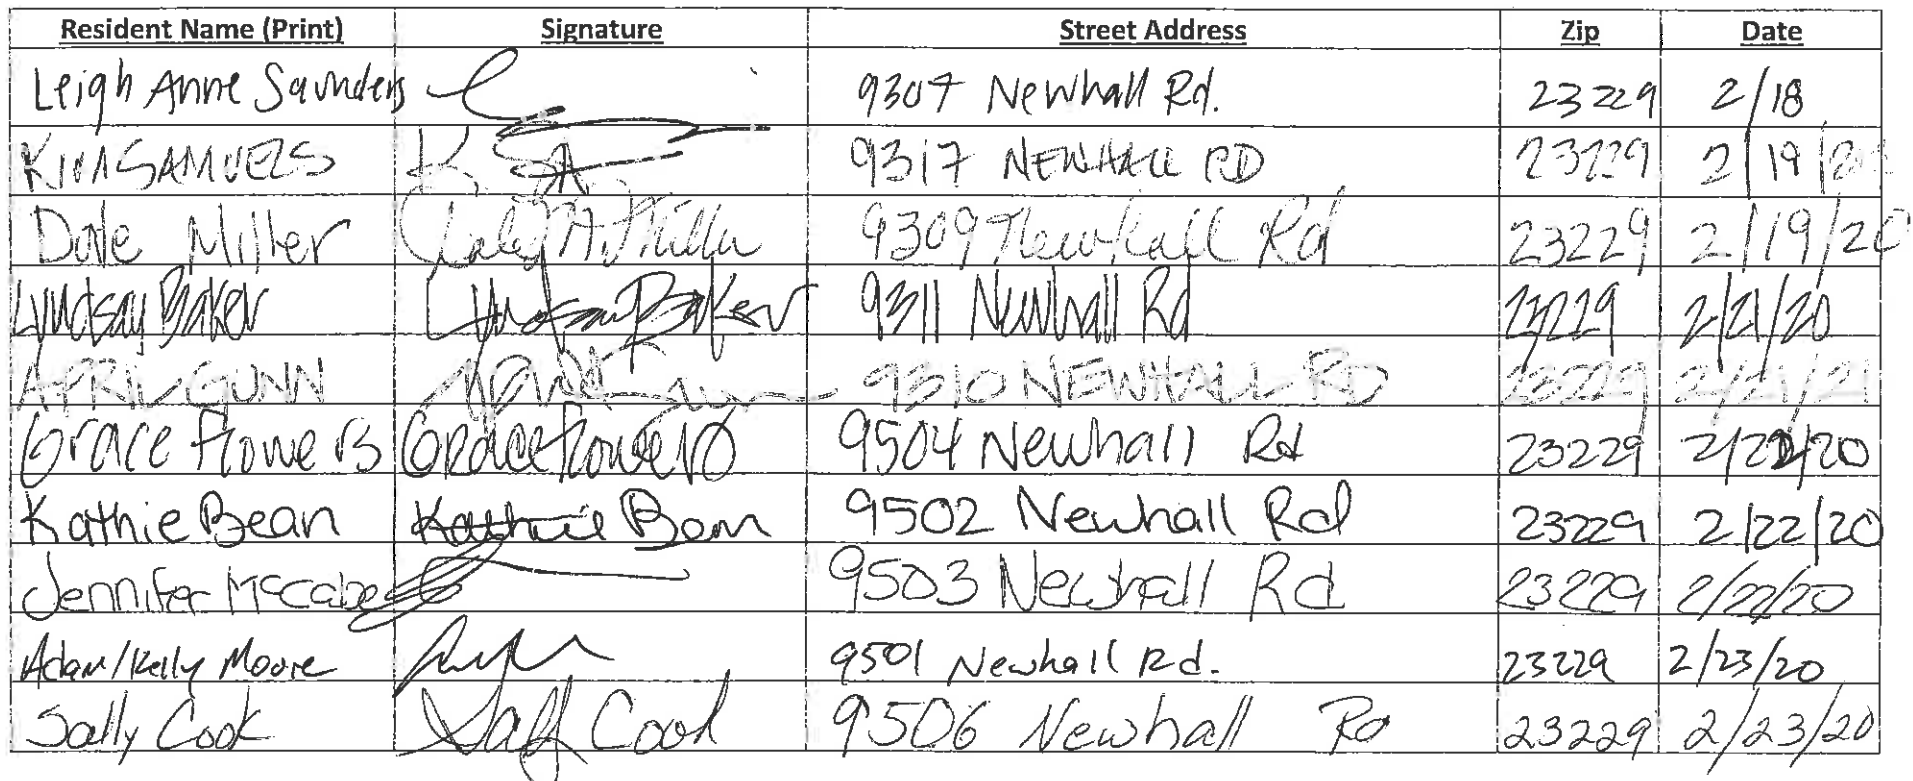 Resident Name (Print) Signature Street Address Zip Date
Leigh Anne Saunders 9307 Newhall Rd. 23229 2/18
KIM SAMUELS K. SA 9317 NEWHALL RD 23229 2/19/20
Dale Miller Dale A. Miller 9309 Newhall Rd 23229 2/19/20
Lyndsay Baker Lyndsay Baker 9311 Newhall Rd 23229 2/21/20
APRIL GUNN 9310 NEWHALL RD 23229 2/21/21
Grace Flowers Grace Flowers 9504 Newhall Rd 23229 2/22/20
Kathie Bean Kathie Bean 9502 Newhall Rd 23229 2/22/20
Jennifer McCabe 9503 Newhall Rd 23229 2/22/20
Adam/Kelly Moore 9501 Newhall Rd. 23229 2/23/20
Sally Cook Sally Cook 9506 Newhall Rd 23229 2/23/20